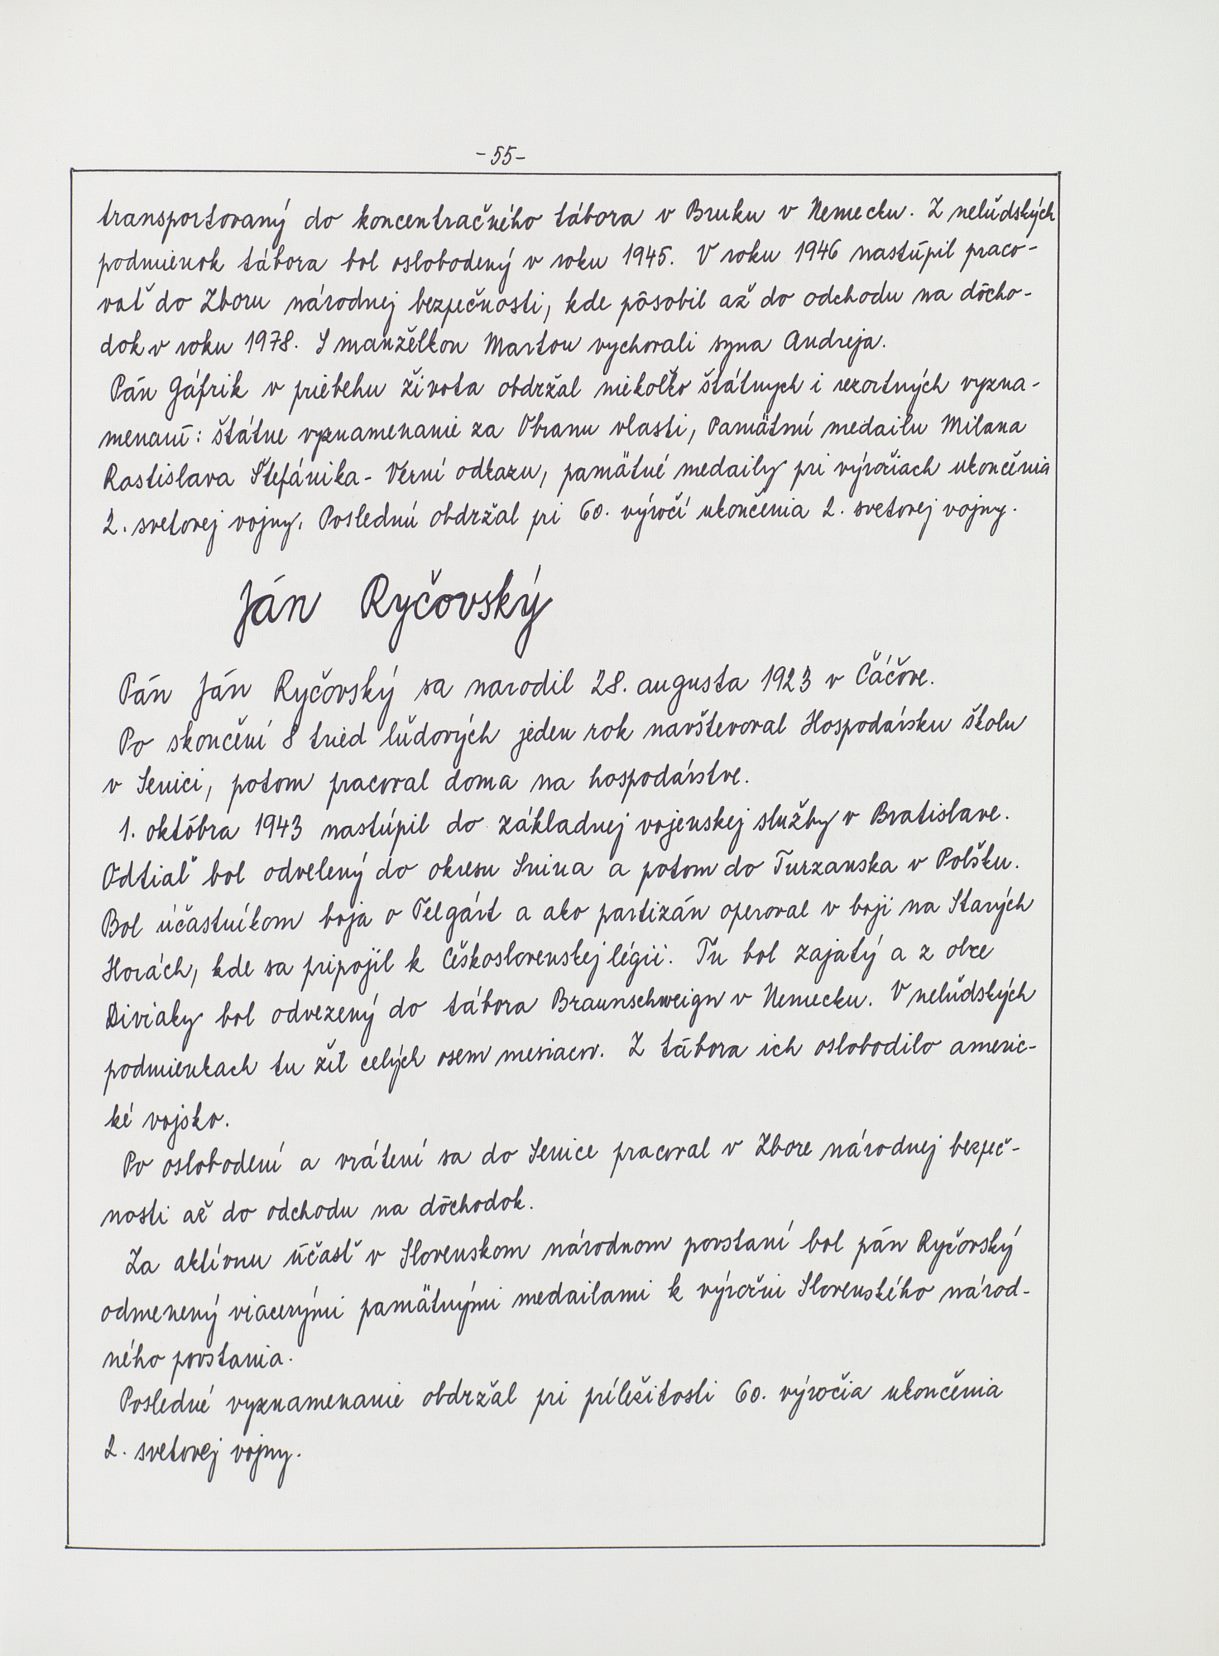 -55-
transportovaný do koncentračného tábora v Bruku v Nemecku. Z neľudských
podmienok tábora bol oslobodený v roku 1945. V roku 1946 nastúpil praco-
vať do Zboru národnej bezpečnosti, kde pôsobil až do odchodu na dôcho-
dok v roku 1978. S manželkou Martou vychovali syna Andreja.
Pán Gáfrik v priebehu života obdržal niekoľko štátnych i rezortných vyzna-
menaní: štátne vyznamenanie za Obranu vlasti, Pamätnú medailu Milana
Rastislava Štefánika - Verní odkazu, pamätné medaily pri výročiach ukončenia
2. svetovej vojny. Poslednú obdržal pri 60. výročí ukončenia 2. svetovej vojny.
Ján Ryčovský
Pán Ján Ryčovský sa narodil 28. augusta 1923 v Čáčove.
Po skončení 8 tried ľudových jeden rok navštevoval Hospodársku školu
v Senici, potom pracoval doma na hospodárstve.
1. októbra 1943 nastúpil do základnej vojenskej služby v Bratislave.
Odtiaľ bol odvelený do okresu Snina a potom do Turzanska v Poľsku.
Bol účastníkom boja o Telgárt a ako partizán operoval v boji na Starých
Horách, kde sa pripojil k Československej légii. Tu bol zajatý a z obce
Diviaky bol odvezený do tábora Braunschweign v Nemecku. V neľudských
podmienkach tu žil celých osem mesiacov. Z tábora ich oslobodilo americ-
ké vojsko.
Po oslobodení a vrátení sa do Senice pracoval v Zbore národnej bezpeč-
nosti až do odchodu na dôchodok.
Za aktívnu účasť v Slovenskom národnom povstaní bol pán Ryčovský
odmenený viacerými pamätnými medailami k výročiu Slovenského národ-
ného povstania.
Posledné vyznamenanie obdržal pri príležitosti 60. výročia ukončenia
2. svetovej vojny.